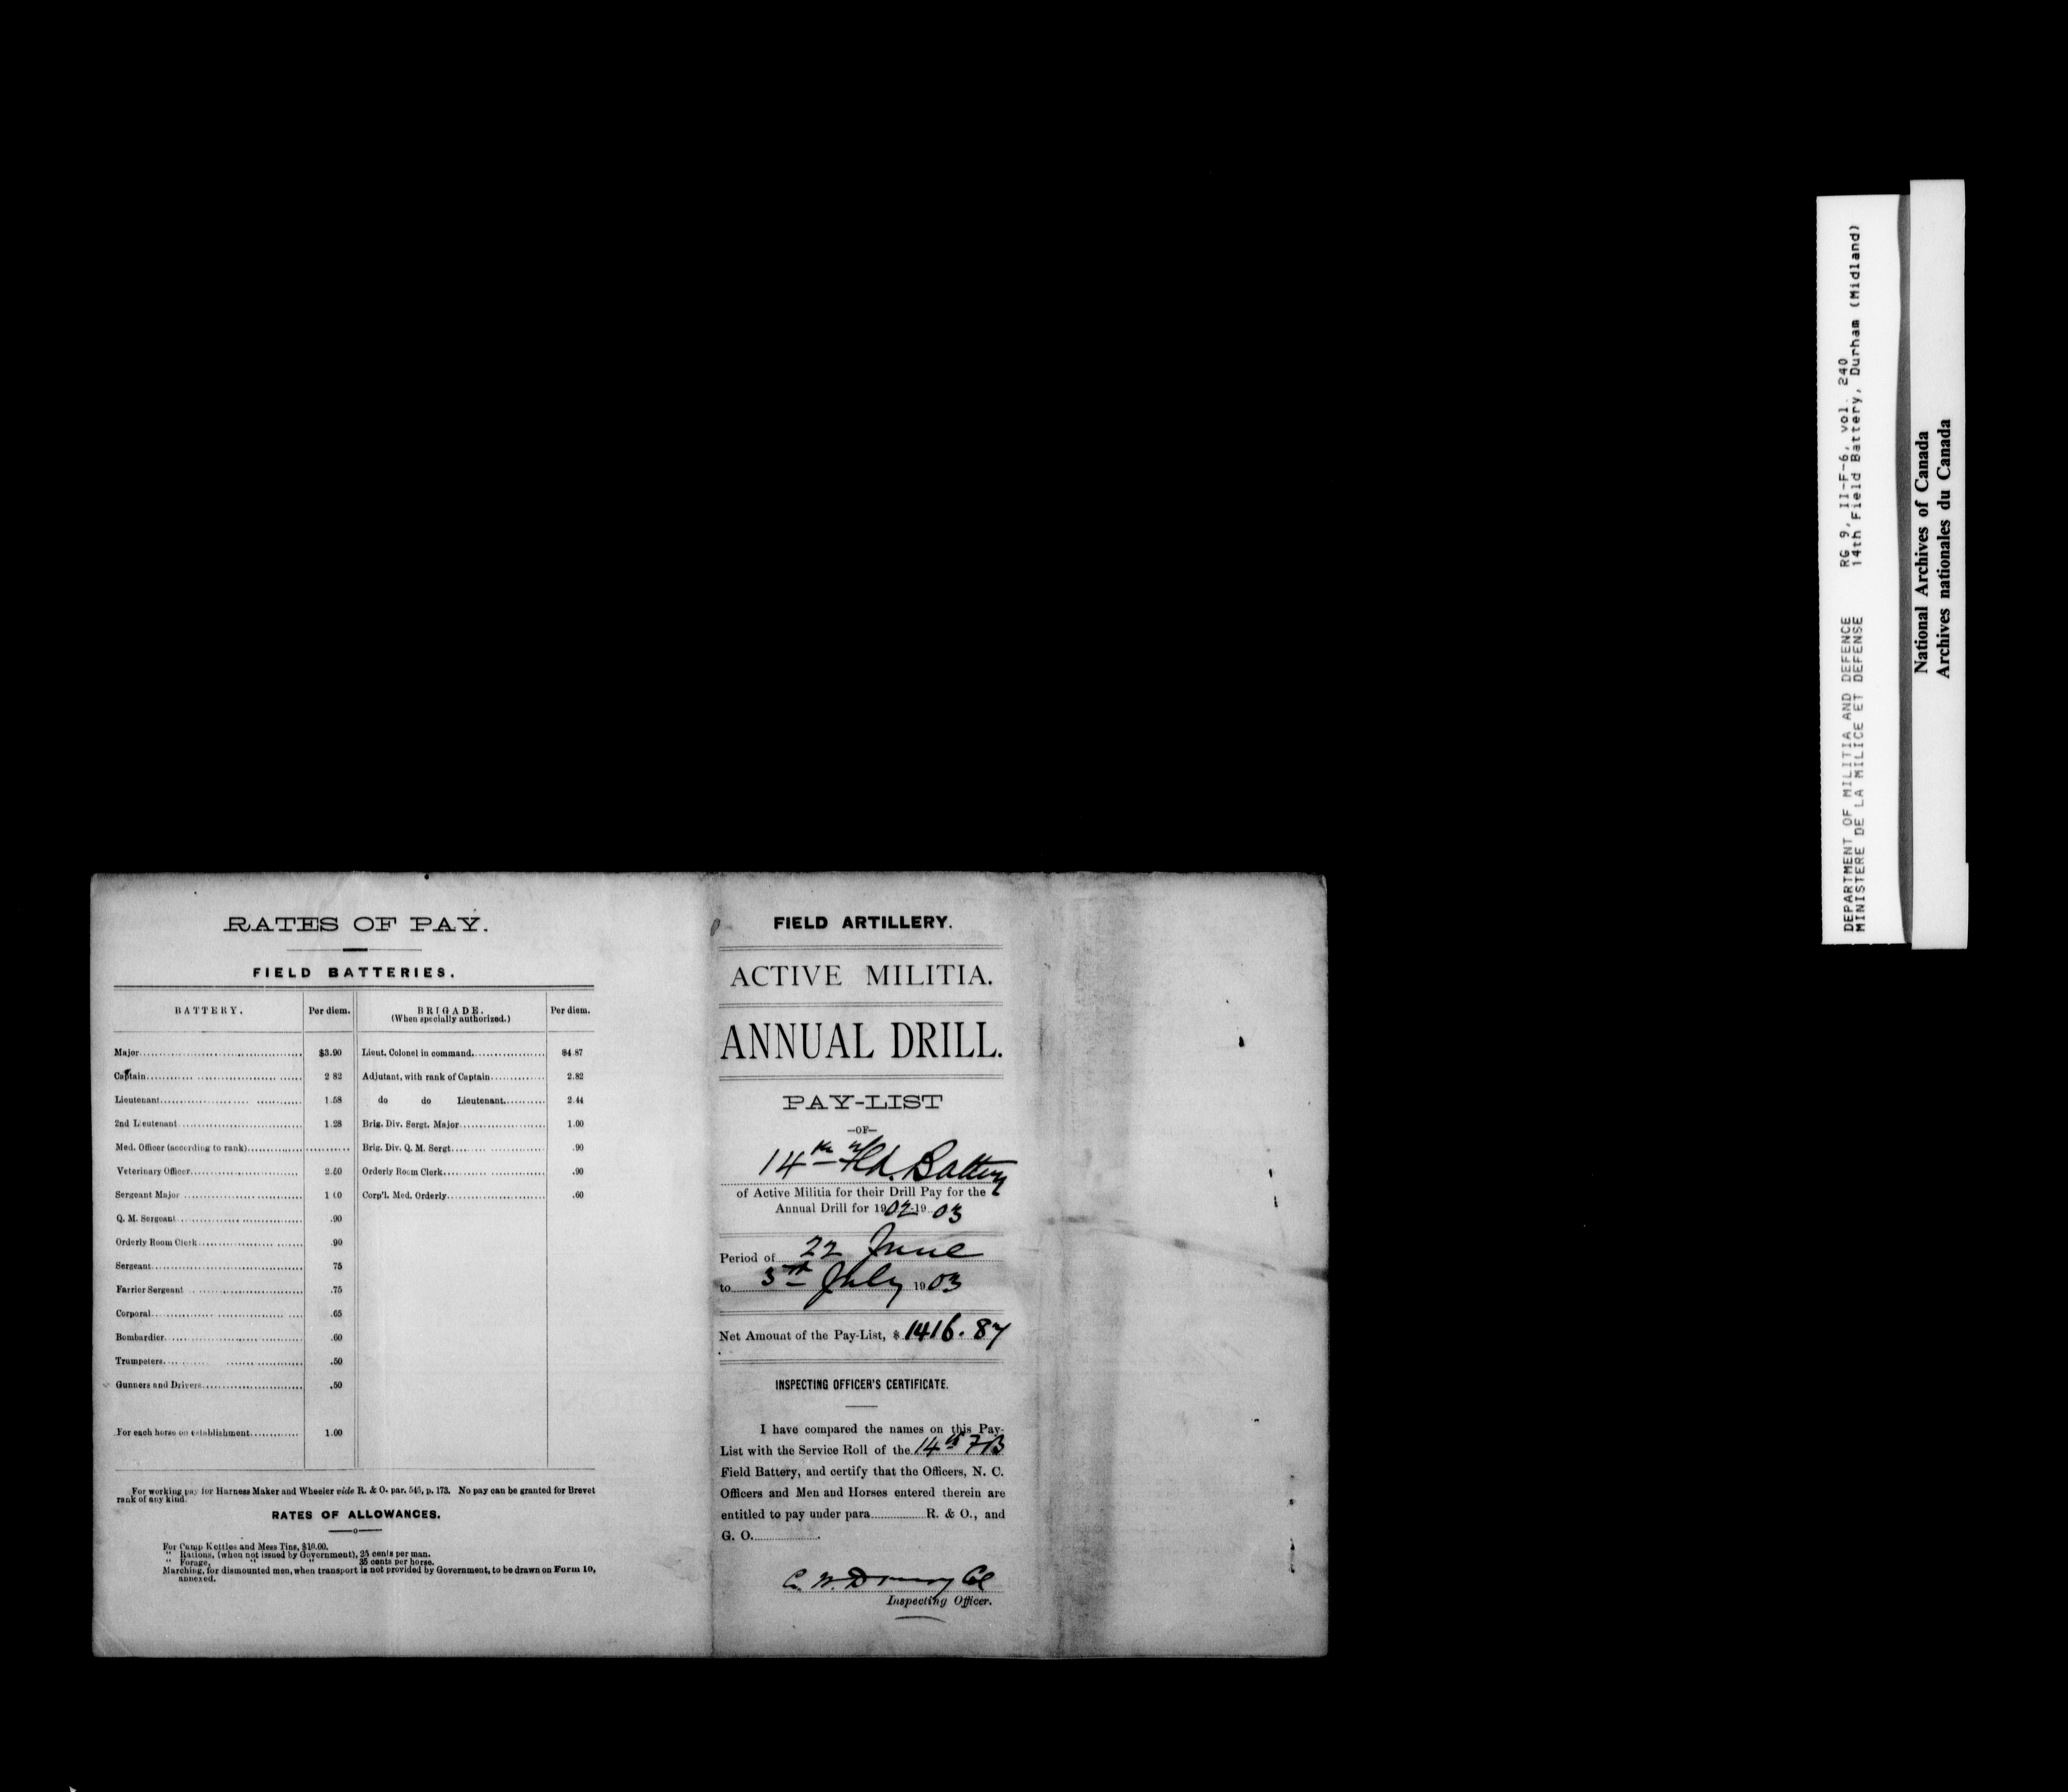 RATES OF PAY.
FIELD BATTERIES.
BATTERY. Per diem. BRIGADE. (When specially authorized.) Per diem.
Major $3.90 Lieut. Colonel in command. $4 87
Captain 2 82 Adjutant, with rank of Captain 2.82
Lieutenant 1.58 do do Lieutenant. 2 44
2nd Lieutenant 1.28 Brig. Div. Sergt. Major 1.00
Med. Officer (according to rank) Brig. Div. Q. M. Sergt. .90
Veterinary Officer 2.50 Orderly Room Clerk .90
Sergeant Major 1 00 Corp'l. Med. Orderly .60
Q. M. Sergeant .90
Orderly Room Clerk .90
Sergeant 75
Farrier Sergeant .75
Corporal .65
Bombardier .60
Trumpeters .50
Gunners and Drivers .50
For each horse on establishment 1.00
For working pay for Harness Maker and Wheeler vide R. & O. par. 545, p. 173. No pay can be granted for Brevet
rank of any kind.
RATES OF ALLOWANCES.
For Camp Kettles and Mess Tins, $10.00.
" Rations, (when not issued by Government), 25 cents per man.
" Forage, " " 35 cents per horse.
Marching, for dismounted men, when transport is not provided by Government, to be drawn on Form 10,
annexed.
FIELD ARTILLERY.
ACTIVE MILITIA.
ANNUAL DRILL.
PAY-LIST
—OF—
14th Fld. Battery
of Active Militia for their Drill Pay for the
Annual Drill for 1902-1903
Period of 22 June
to 3rd July 1903
Net Amount of the Pay-List, $ 1416.87
INSPECTING OFFICER'S CERTIFICATE.
I have compared the names on this Pay-
List with the Service Roll of the 14th FB
Field Battery, and certify that the Officers, N. C.
Officers and Men and Horses entered therein are
entitled to pay under para. R. & O., and
G. O.
C. W. Drury Col
Inspecting Officer.
DEPARTMENT OF MILITIA AND DEFENCE RG 9, II-F-6, vol. 240
MINISTERE DE LA MILICE ET DEFENSE 14th Field Battery, Durham (Midland)
National Archives of Canada
Archives nationales du Canada